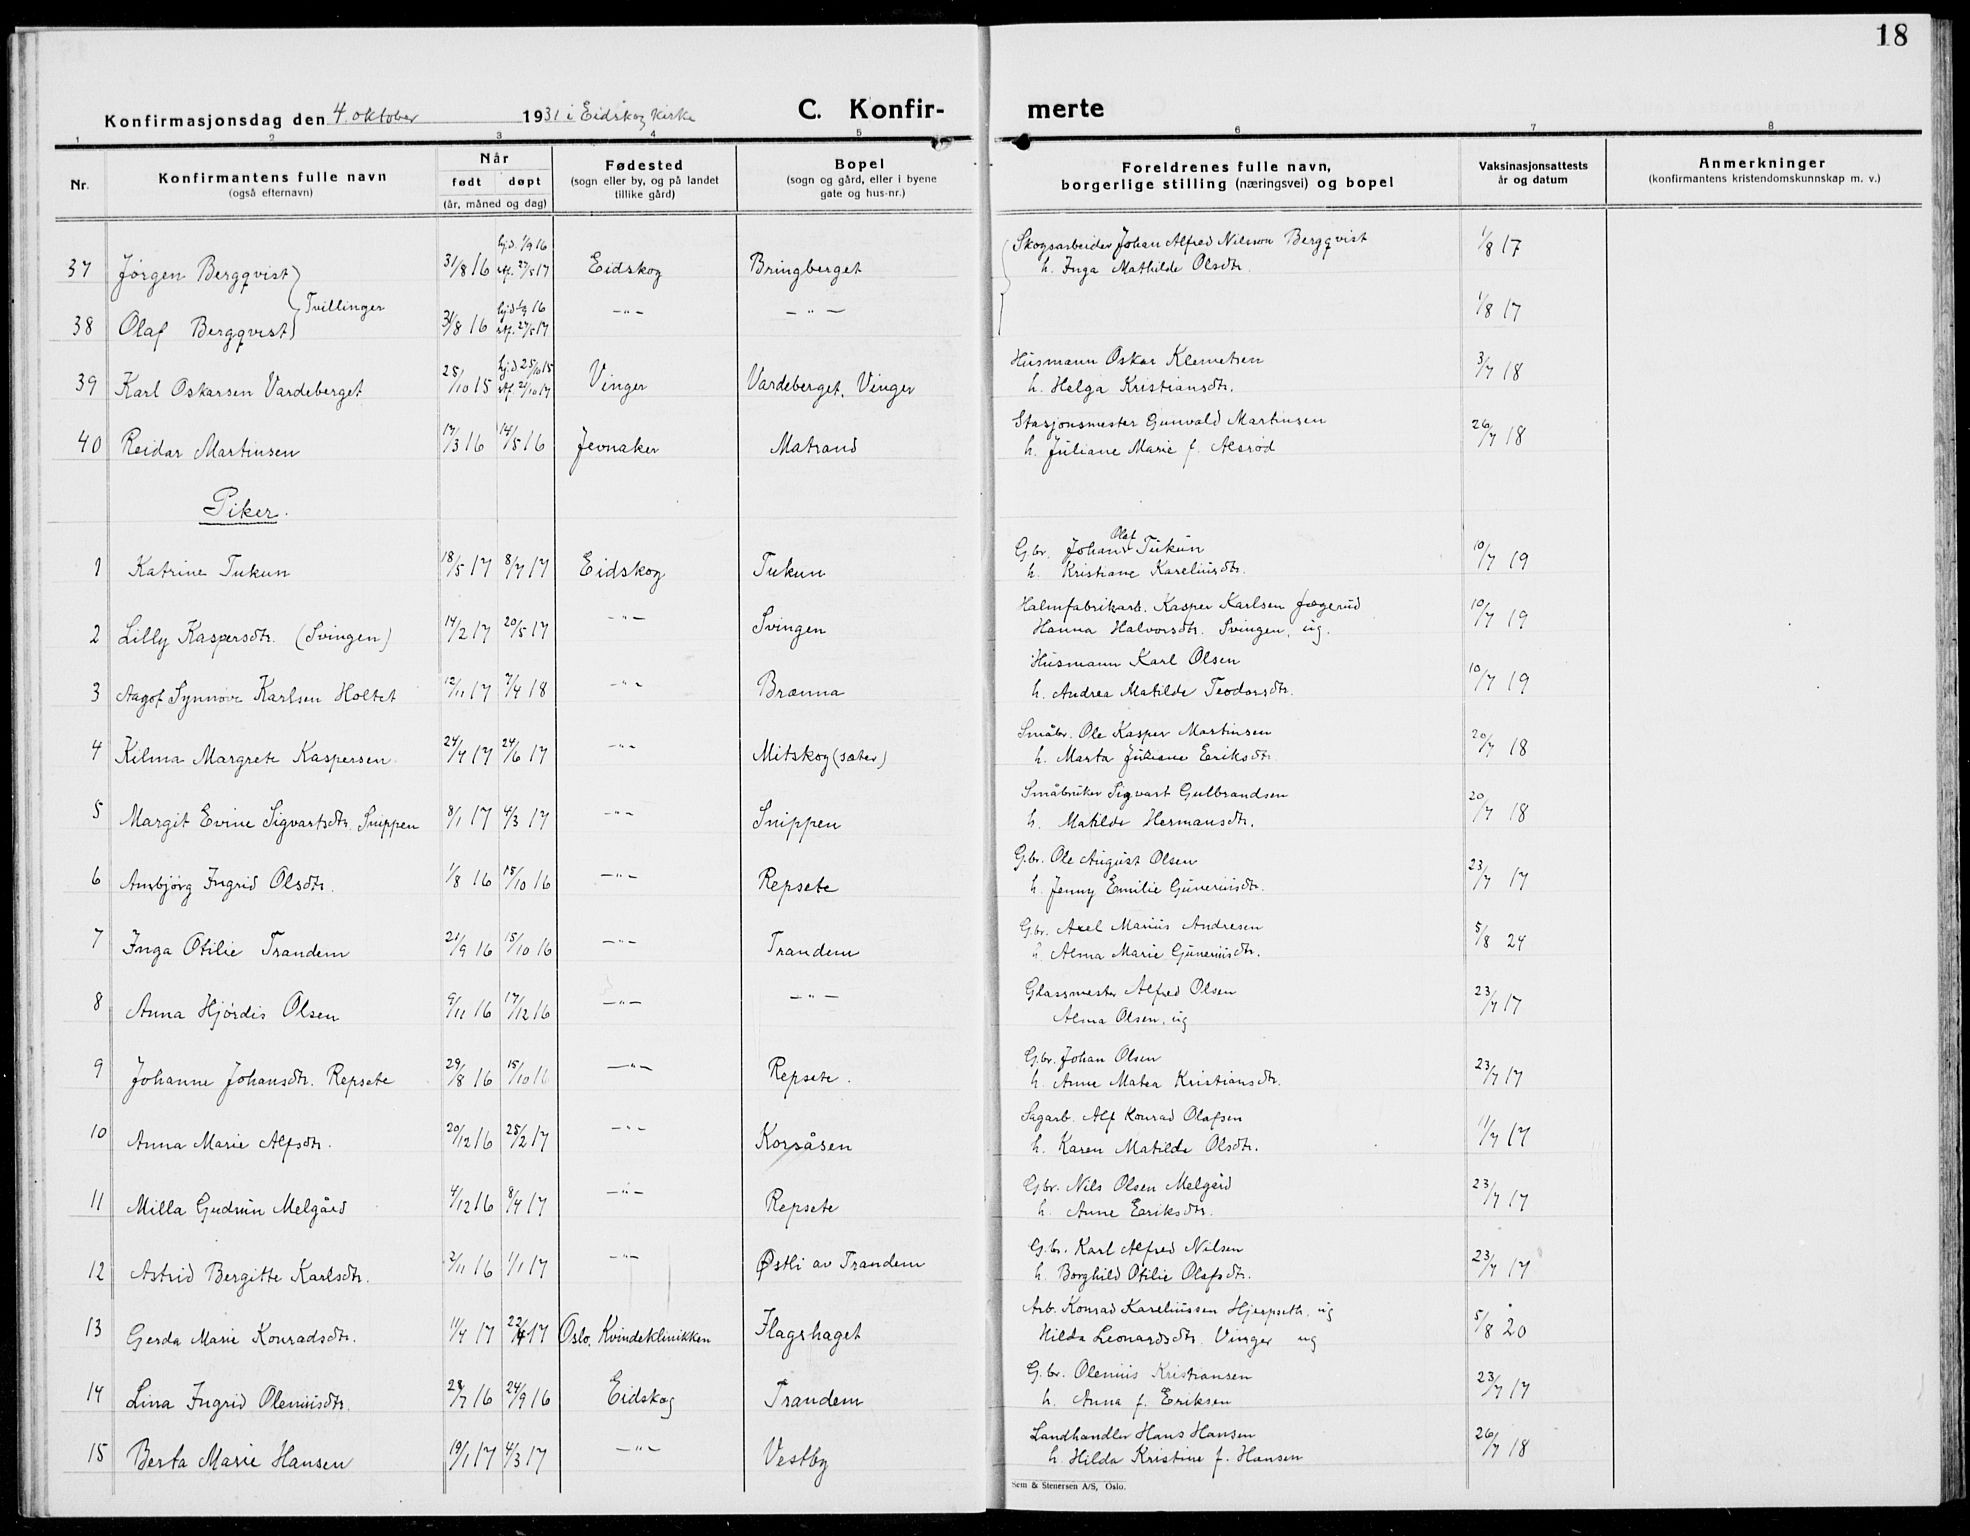 18
Konfirmasjonsdag den 4. oktober 1931 i Eidskog kirke C. Konfir- merte
1 2 3 4 5 6 7 8
Nr. Konfirmantens fulle navn (også efternavn) Når født døpt (år, måned og dag) Fødested (sogn eller by, og på landet tillike gård) Bopel (sogn og gård, eller i byene gate og hus-nr.) Foreldrenes fulle navn, borgerlige stilling (næringsvei) og bopel Vaksinasjonsattests år og datum Anmerkninger (konfirmantens kristendomskunnskap m. v.)
37 Jørgen Bergqvist 31/8 16 hj.d. 1/9 16 stf. 27/5 17 Eidskog Bringberget Skogsarbeider Johan Alfred Nilsson Bergqvist h. Inga Mathilde Olsdtr. 1/8 17
Tvillinger
38 Olaf Bergqvist 31/8 16 hj.d. 1/9 16 stf. 27/5 17 -"- -"- 1/8 17
39 Karl Oskarsen Vardeberget 25/10 15 hj.d. 25/10 15 stf. 21/10 17 Vinger Vardeberget, Vinger Husmann Oskar Klemetsen h. Helga Kristiansdtr. 3/7 18
40 Reidar Martinsen 17/3 16 14/5 16 Jevnaker Matrand Stasjonsmester Gunvald Martinsen h. Juliane Marie f. Alsrød 26/7 18
Piker.
1 Katrine Tukun 18/5 17 8/7 17 Eidskog Tukun G.br. Johan Olaf Tukun h. Kristiane Kareliusdtr. 10/7 19
2 Lilly Kaspersdtr. (Svingen) 14/2 17 20/5 17 -"- Svingen Halmfabrikarb. Kasper Karlsen Jægerud Hanna Halvorsdtr. Svingen, ug. 10/7 19
3 Aagot Synnøve Karlsen Holtet 12/11 17 7/4 18 -"- Brænna Husmann Karl Olsen h. Andrea Matilde Teodorsdtr. 10/7 19
4 Kilma Margrete Kaspersen 24/4 17 24/6 17 -"- Mitskog (sæter) Småbr. Ole Kasper Martinsen h. Marta Juliane Eriksdtr. 20/7 18
5 Margit Evine Sigvartsdtr. Snippen 8/1 17 4/3 17 -"- Snippen Småbruker Sigvart Gulbrandsen h. Matilde Hermansdtr. 20/7 18
6 Ansbjørg Ingrid Olsdtr. 1/8 16 15/10 16 -"- Repsete G.br. Ole August Olsen h. Jenny Emilie Guneriusdtr. 23/7 17
7 Inga Otilie Trandem 21/9 16 15/10 16 -"- Trandem G.br. Axel Marius Andresen h. Alma Marie Guneriusdtr. 5/8 24
8 Anna Hjørdis Olsen 9/11 16 17/12 16 -"- -"- Glassmester Alfred Olsen Alma Olsen, ug 23/7 17
9 Johanne Johansdtr. Repsete 29/8 16 15/10 16 -"- Repsete. G.br. Johan Olsen h. Anne Matea Kristiansdtr. 23/7 17
10 Anna Marie Alfsdtr. 20/12 16 25/2 17 -"- Korsåsen Sagarb. Alf Konrad Olafsen h. Karen Matilde Olsdtr. 11/7 17
11 Milla Gudrun Melgård 4/12 16 8/4 17 -"- Repsete Gbr. Nils Olsen Melgård h. Anne Eriksdtr. 23/7 17
12 Astrid Bergitte Karlsdtr. 2/11 16 1/1 17 -"- Østli av Trandem G.br. Karl Alfred Nilsen h. Borghild Otilie Olafsdtr. 23/7 17
13 Gerda Marie Konradsdtr. 11/4 17 22/4 17 Oslo, Kvindeklinikken Flagshaget Arb. Konrad Kareliussen Hjerpseth. ug Hilda Leonardsdtr. Vinger ug 5/8 20
14 Lina Ingrid Oleniusdtr. 28/7 16 24/9 16 Eidskog Trandem G.br. Olenius Kristiansen h. Anna f. Eriksen 23/7 17
15 Berta Marie Hansen 19/1 17 4/3 17 -"- Vestby Landhandler Hans Hansen h. Hilda Kristine f. Hansen 26/7 18
Sem & Stenersen A/S, Oslo.